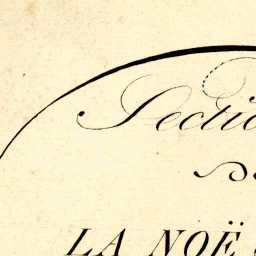 Sectio
LA NOË